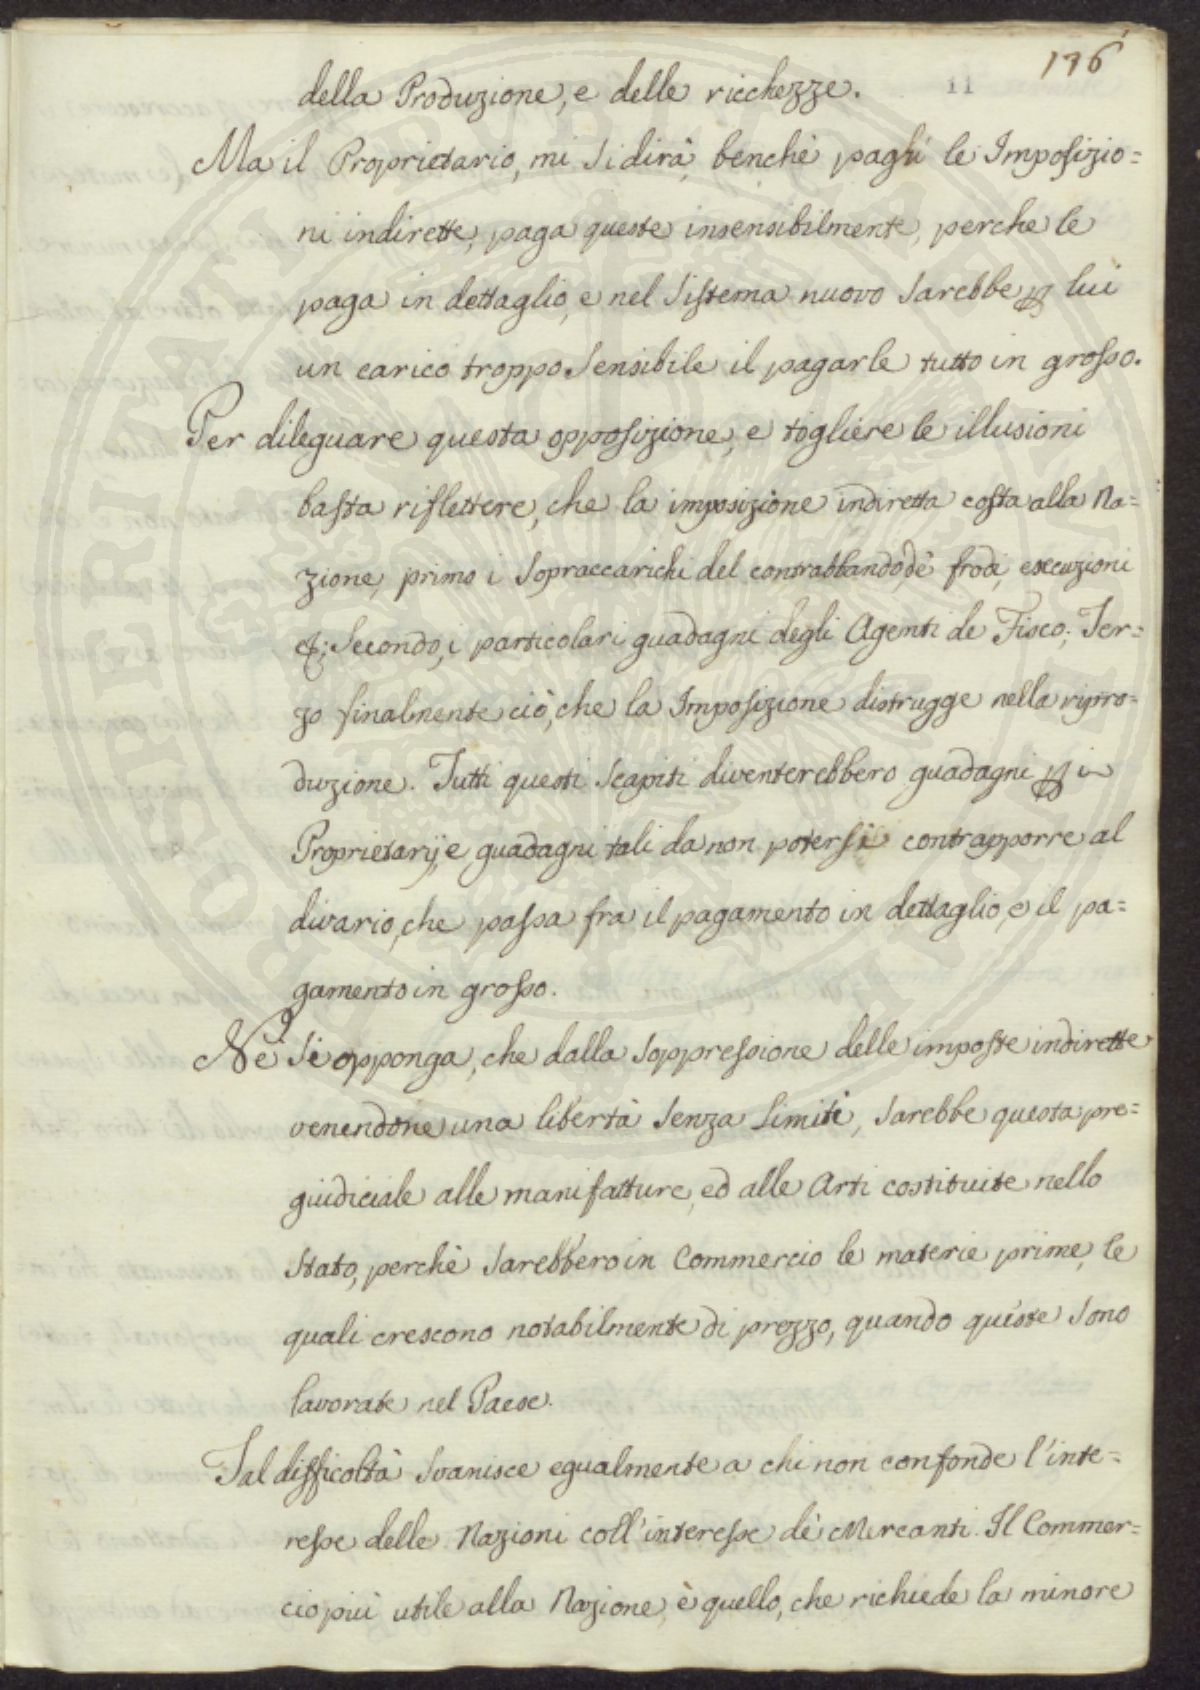 176
della Produzione, e delle ricchezze.
Ma il Proprietario, mi si dirà, benchè paghi le Imposizio=
ni indirette, paga queste insensibilmente, perche le
paga in dettaglio, e nel sistema nuovo sarebbe ꝑ lui
un carico troppo sensibile il pagarle tutto in grosso.
Per dileguare questa opposizione, e togliere le illusioni
basta riflettere, che la imposizione indiretta costa alla Na=
zione, primo i sopraccarichi del contrabbando, dè frodi, execuzioni
&; Secondo, i particolari guadagni degli Agenti de Fisco; Ter=
zo finalmente ciò, che la Imposizione distrugge nella ripro=
duzione. Tutti questi scapiti diventerebbero guadagni ꝑ i
Proprietarij, e guadagni tali da non potersi contrapporre al
divario, che passa fra il pagamento in dettaglio, e il pa=
gamento in grosso.
Nè si opponga, che dalla soppressione delle imposte indirette
venendone una libertà senza limiti, sarebbe questa pre=
giudiciale alle manifatture, ed alle Arti costituite nello
Stato, perchè sarebbero in Commercio le materie prime, le
quali crescono notabilmente di prezzo, quando queste sono
lavorate nel Paese.
Tal difficoltà svanisce egualmente a chi non confonde l'inte=
resse delle Nazioni coll'interesse dè Mercanti. Il Commer=
cio più utile alla Nazione, è quello, che richiede la minore
PROSPERITATI PUBLICAE